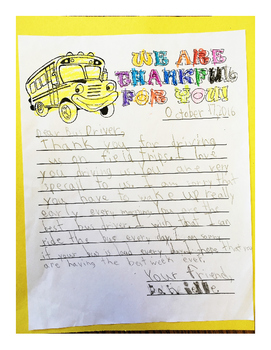 WE ARE
THANKFUL
FOR YOU!
October 17, 2016
Dear Bus Driver,
Thank you for driving
us on field trips. I love
you driving us. You are very
special to us. I know that
you have to wake up really
early every morning. You are the
best bus driver. I wish that I can
ride the bus every day. I am sorry
if your bus is loud every day. I hope that you
are having the best week ever.
Your friend,